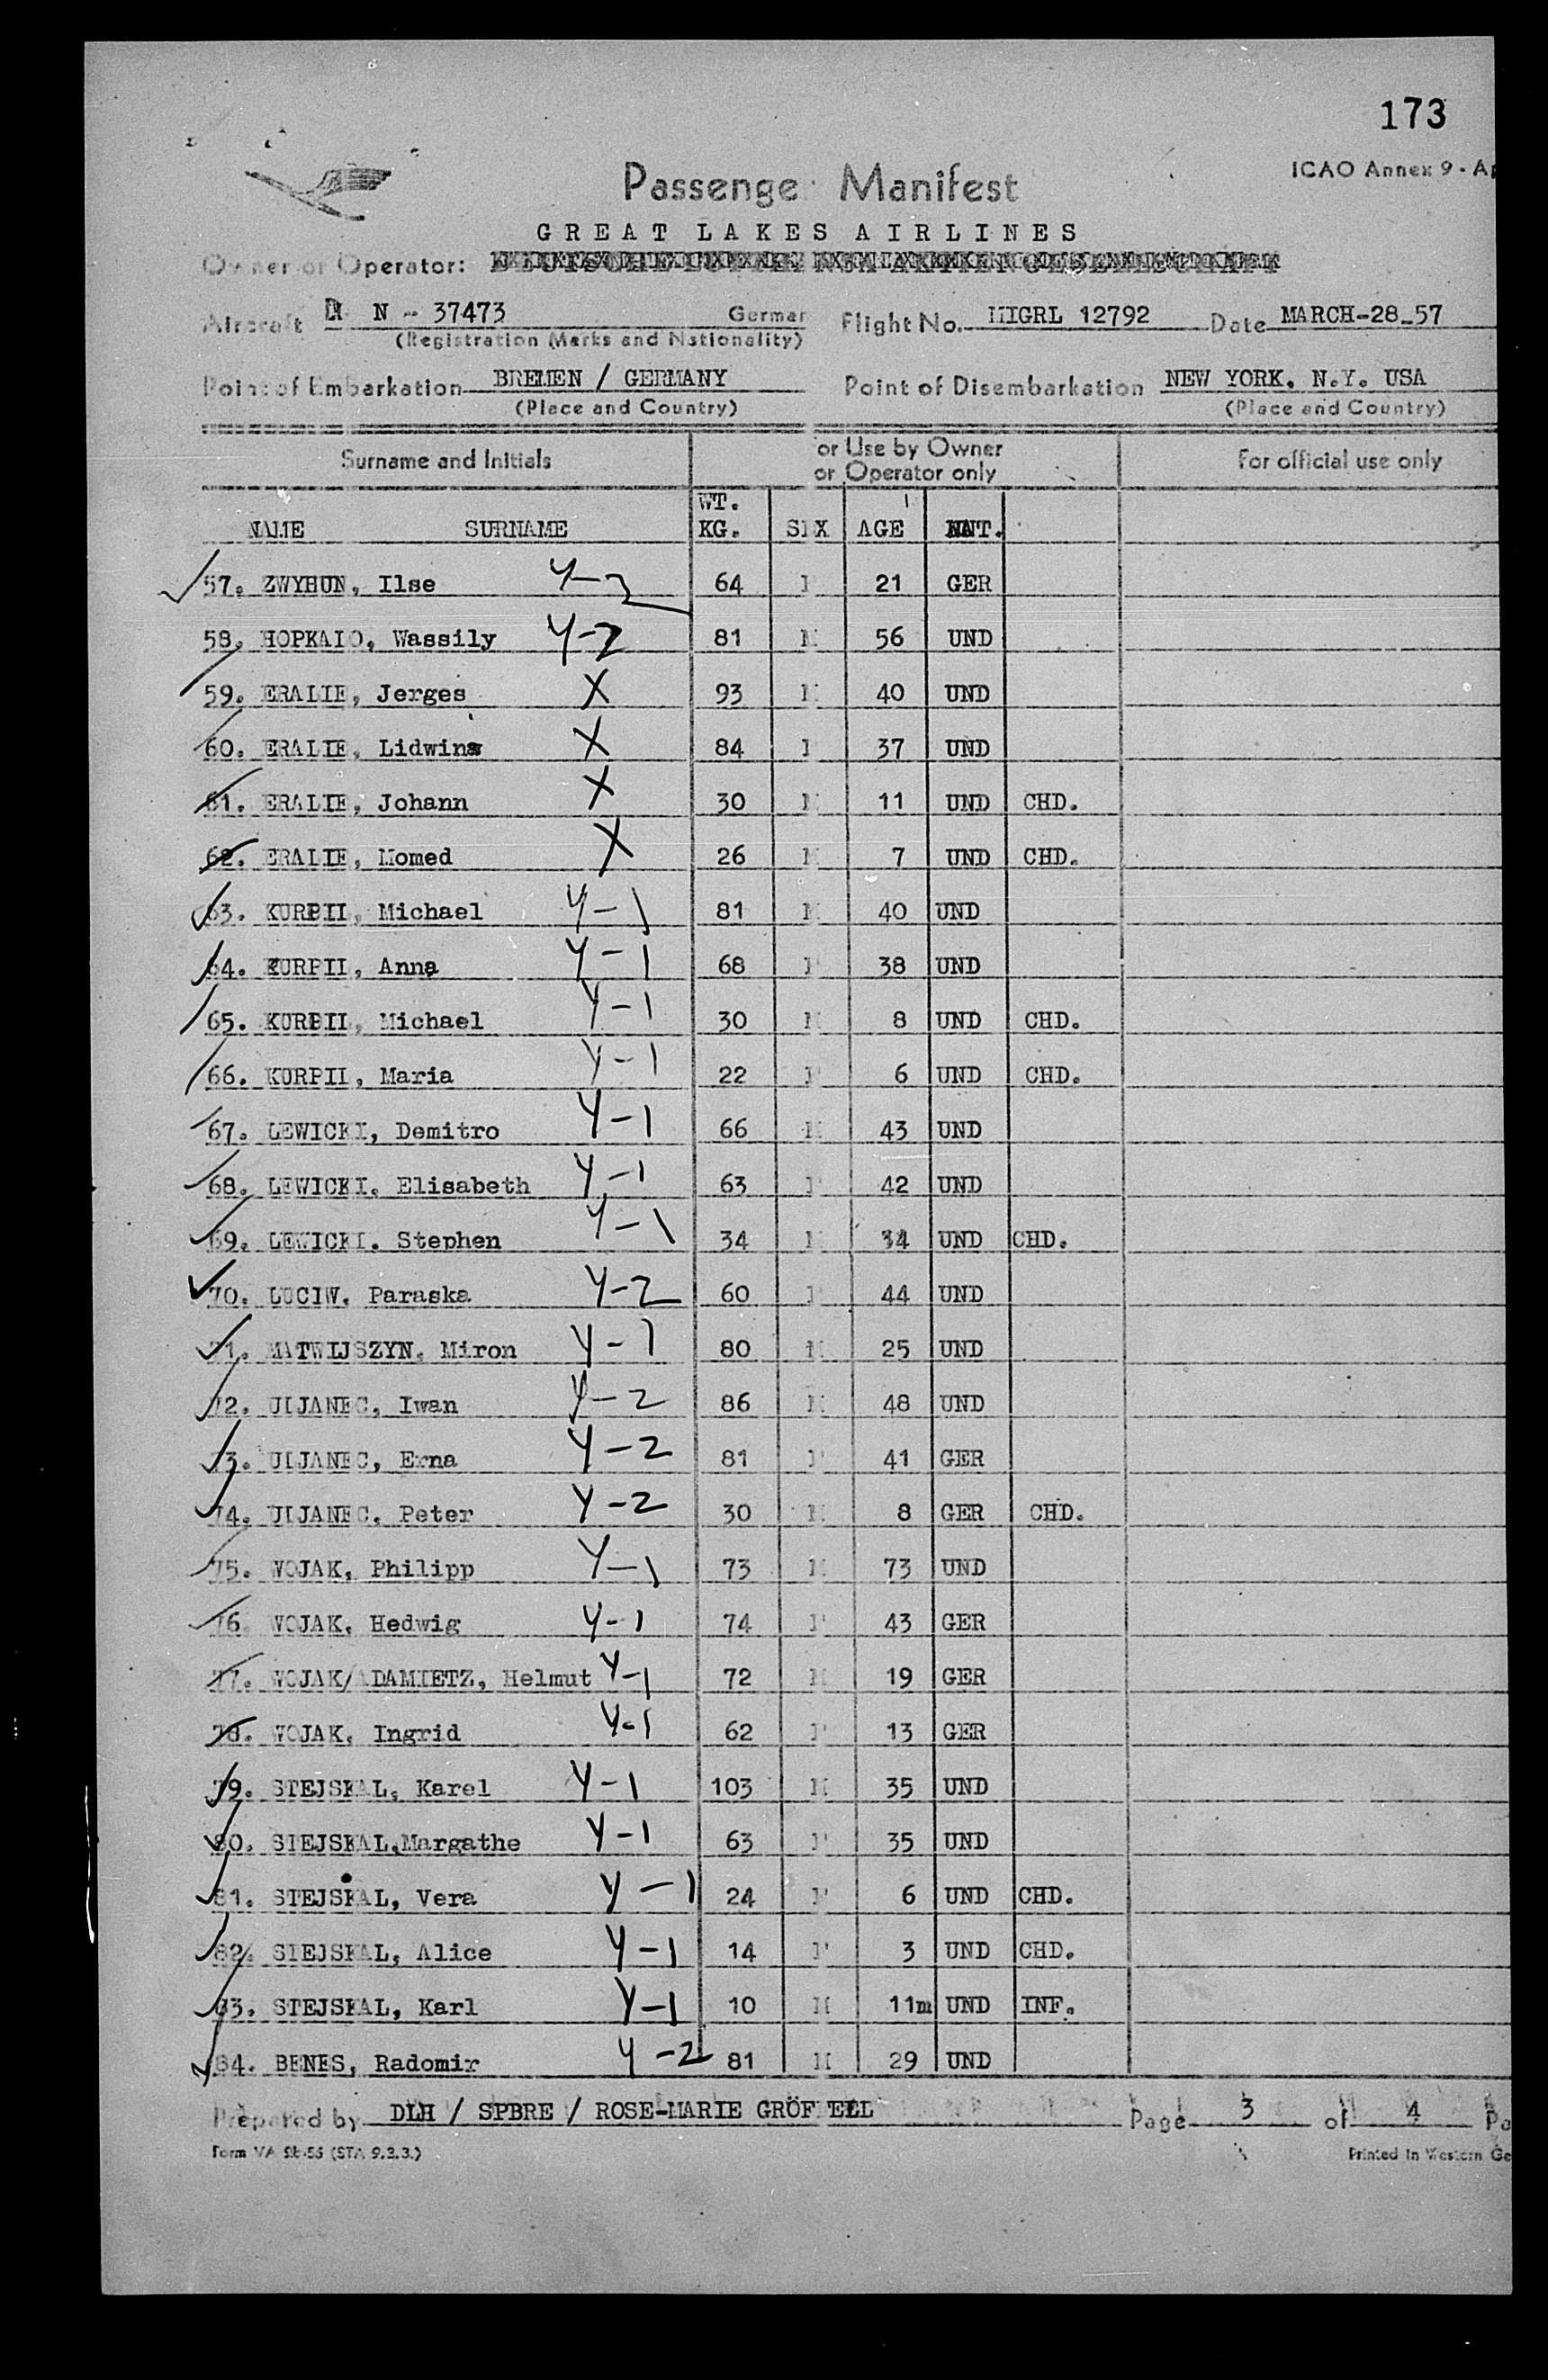 173
ICAO Annex 9 - Ap
Passenger Manifest
GREAT LAKES AIRLINES
Owner or Operator:
Aircraft N - 37473 German Flight No. MIGRL 12792 Date MARCH-28-57
(Registration Marks and Nationality)
Point of Embarkation BREMEN / GERMANY Point of Disembarkation NEW YORK. N.Y. USA
(Place and Country) (Place and Country)
Surname and Initials For Use by Owner or Operator only For official use only
NAME SURNAME WT. KG. SEX AGE NAT.
57. ZWYHUN, Ilse 64 F 21 GER
58. HOPKAIO, Wassily Y-2 81 M 56 UND
59. ERALIE, Jerges X 93 M 40 UND
60. ERALIE, Lidwina X 84 F 37 UND
61. ERALIE, Johann X 30 M 11 UND CHD.
62. ERALIE, Momed X 26 M 7 UND CHD.
63. KURPII, Michael Y-1 81 M 40 UND
64. KURPII, Anna Y-1 68 F 38 UND
65. KURPII, Michael Y-1 30 M 8 UND CHD.
66. KURPII, Maria Y-1 22 F 6 UND CHD.
67. LEWICKI, Demitro Y-1 66 M 43 UND
68. LEWICKI, Elisabeth Y-1 63 F 42 UND
69. LEWICKI. Stephen Y-1 34 M 34 UND CHD.
70. LUCIW. Paraska Y-2 60 F 44 UND
71. MATWIJSZYN. Miron Y-1 80 M 25 UND
72. ULJANEC, Iwan Y-2 86 M 48 UND
73. ULJANEC, Erna Y-2 81 F 41 GER
74. ULJANEC. Peter Y-2 30 M 8 GER CHD.
75. WOJAK, Philipp Y-1 73 M 73 UND
76. WOJAK, Hedwig Y-1 74 F 43 GER
77. WOJAK/ADAMIETZ, Helmut Y-1 72 M 19 GER
78. WOJAK, Ingrid Y-1 62 F 13 GER
79. STEJSKAL, Karel Y-1 103 M 35 UND
80. STEJSKAL,Margathe Y-1 63 F 35 UND
81. STEJSKAL, Vera Y-1 24 F 6 UND CHD.
82. STEJSKAL, Alice Y-1 14 F 3 UND CHD.
83. STEJSKAL, Karl Y-1 10 M 11m UND INF.
84. BENES, Radomir Y-2 81 M 29 UND
Prepared by DLH / SPBRE / ROSE-MARIE Page 3 of 4 Pa
Form VA (STA 9.3.3.) Printed in Western Ge